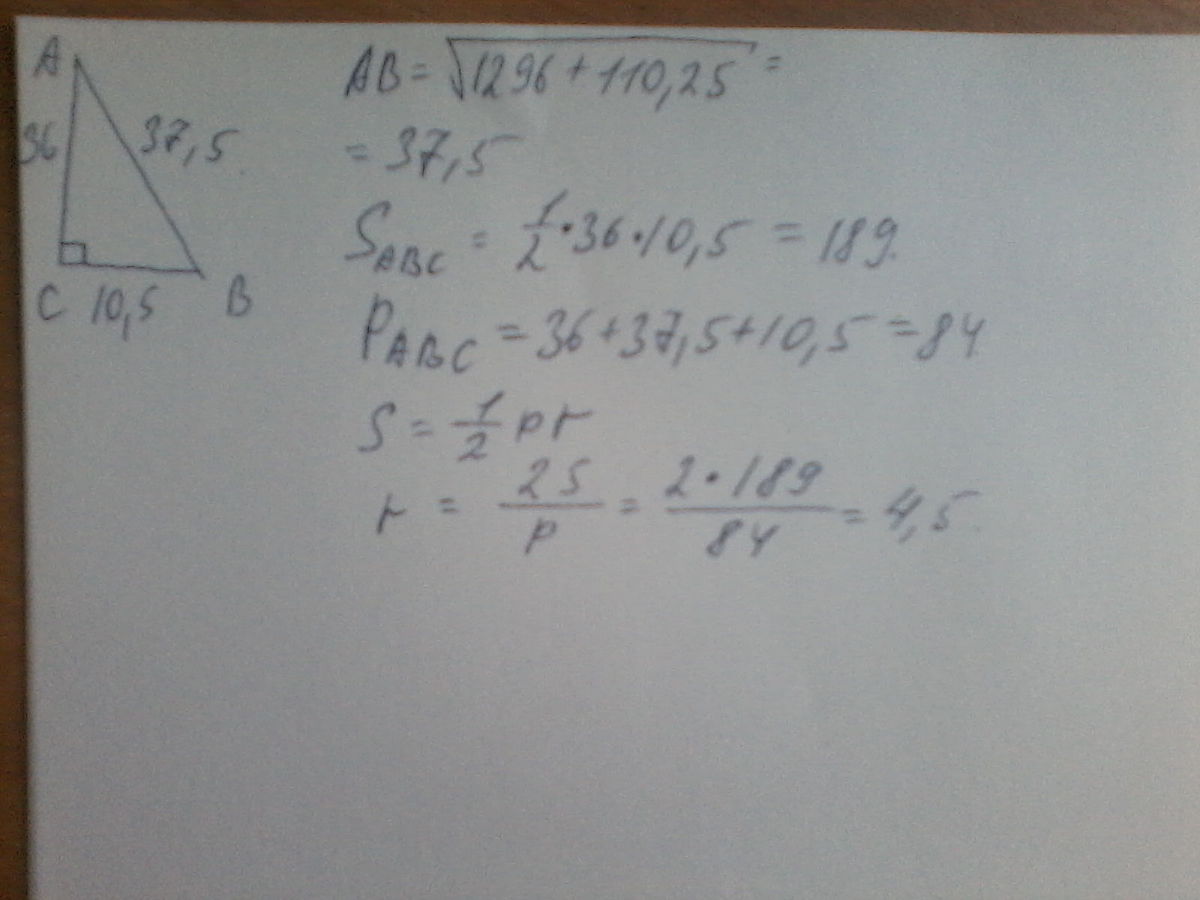 A
36
37,5
C 10,5 B
AB = √1296 + 110,25 =
= 37,5
S_ABC = 1/2 · 36 · 10,5 = 189.
P_ABC = 36 + 37,5 + 10,5 = 84
S = 1/2 pr
r = 2S/P = 2 · 189/84 = 4,5.